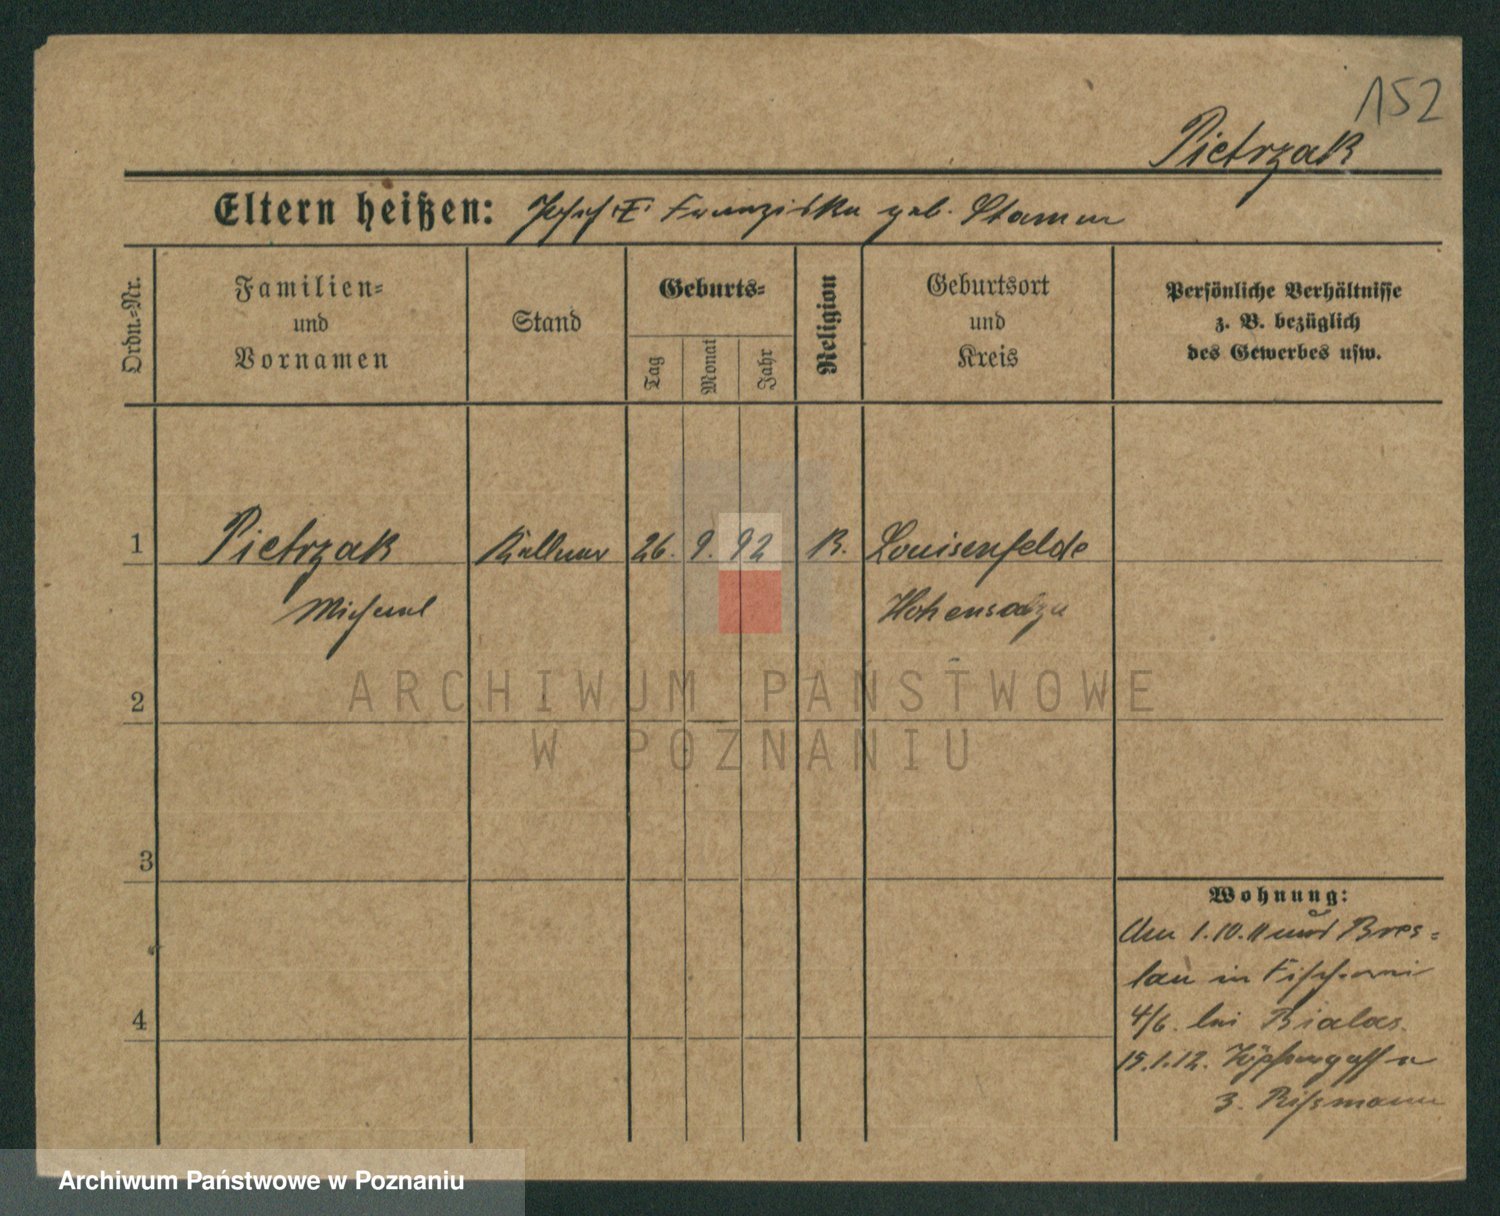 152
Pietrzak
Eltern heißen: Josef E. Franziska geb. Stamm
Ordn.=Nr.
Familien=
und
Vornamen
Stand
Geburts=
Tag
Monat
Jahr
Religion
Geburtsort
und
Kreis
Persönliche Verhältnisse
z. B. bezüglich
des Gewerbes usw.
1 Pietrzak Kellner 26. 9. 92 K. Louisenfelde
Michael Hohensalza
2
3
4
Wohnung:
Am 1.10.11 nach Bres=
lau in Fischerei
4/6. bei Bialas.
15.1.12.
3. Rissmann
ARCHIWUM PAŃSTWOWE
W POZNANIU
Archiwum Państwowe w Poznaniu